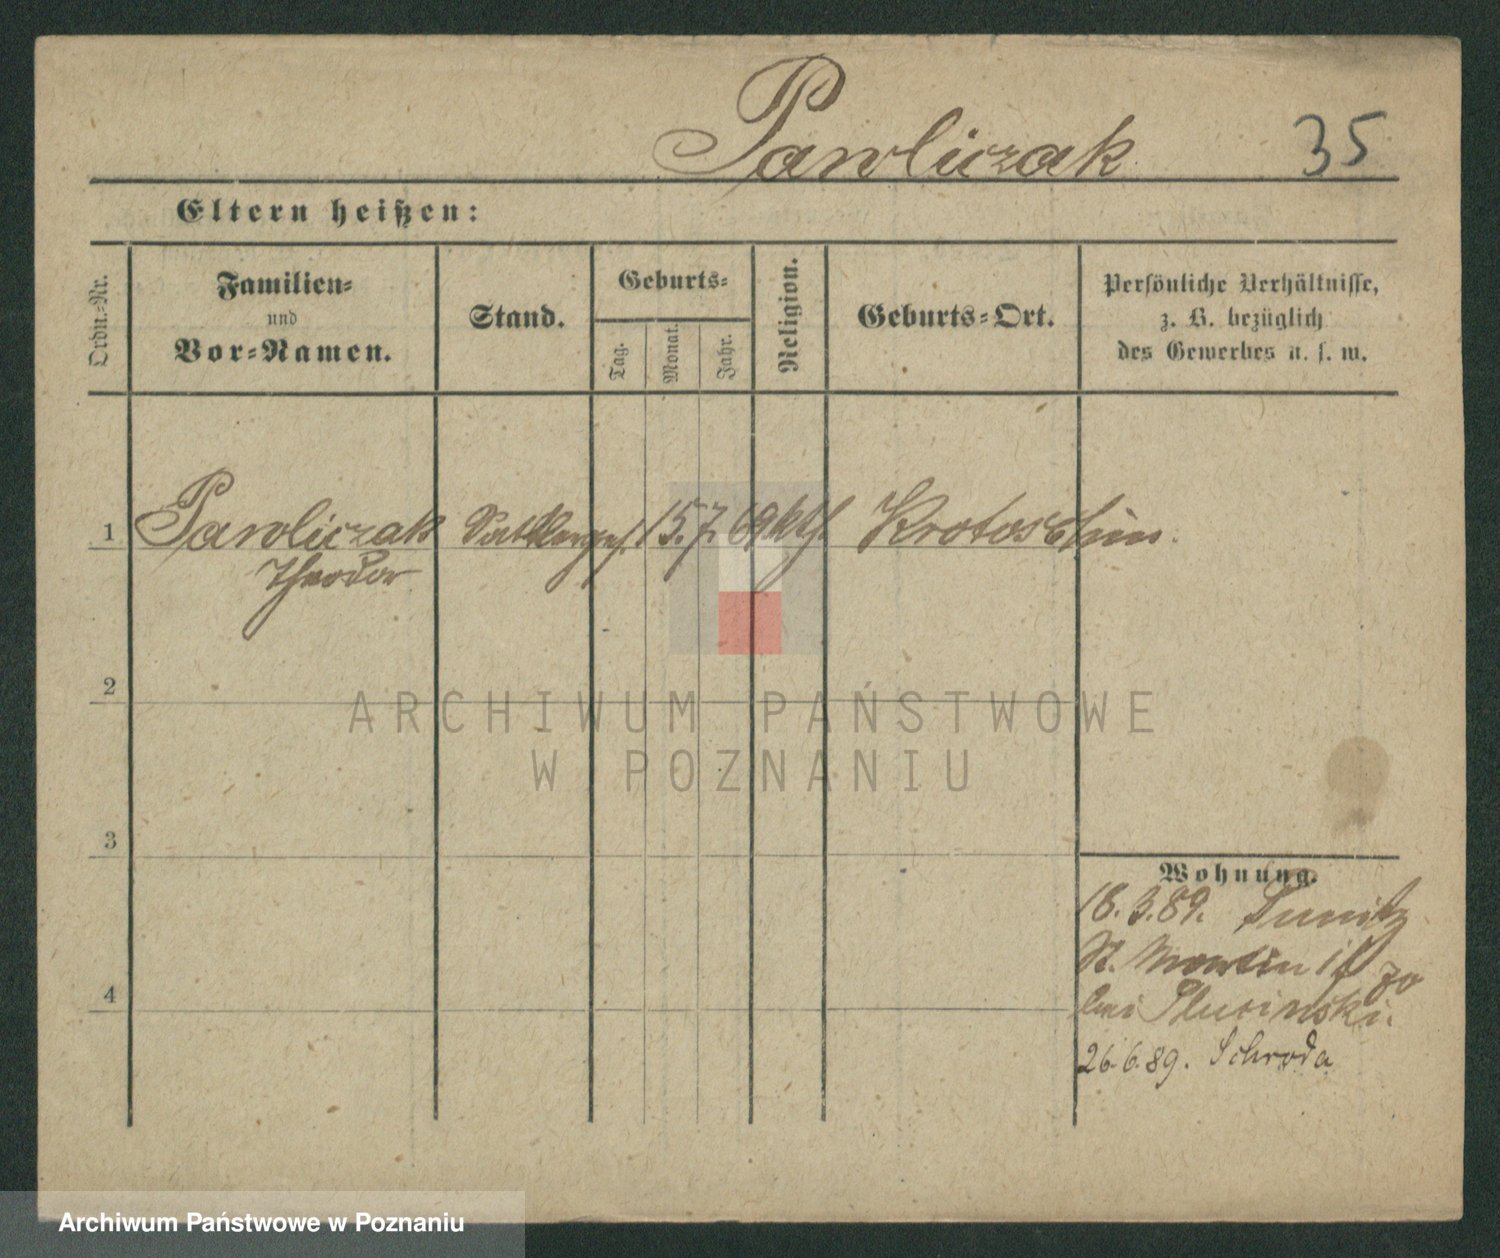 Pawliczak 35
Eltern heißen:
Ordn.-Nr.
Familien-
und
Vor-Namen.
Stand.
Geburts-
Tag.
Monat.
Jahr.
Religion.
Geburts-Ort.
Persönliche Verhältnisse,
z. B. bezüglich
des Gewerbes u. s. w.
1 Pawliczak Sattlerges. 15. 7. 69 kth. Krotoschin.
Theodor
2
ARCHIWUM PAŃSTWOWE
W POZNANIU
3
Wohnung.
18. 3. 89. Punitz
St. Martin
bei Plucinski.
4
26. 6. 89. Schroda
Archiwum Państwowe w Poznaniu